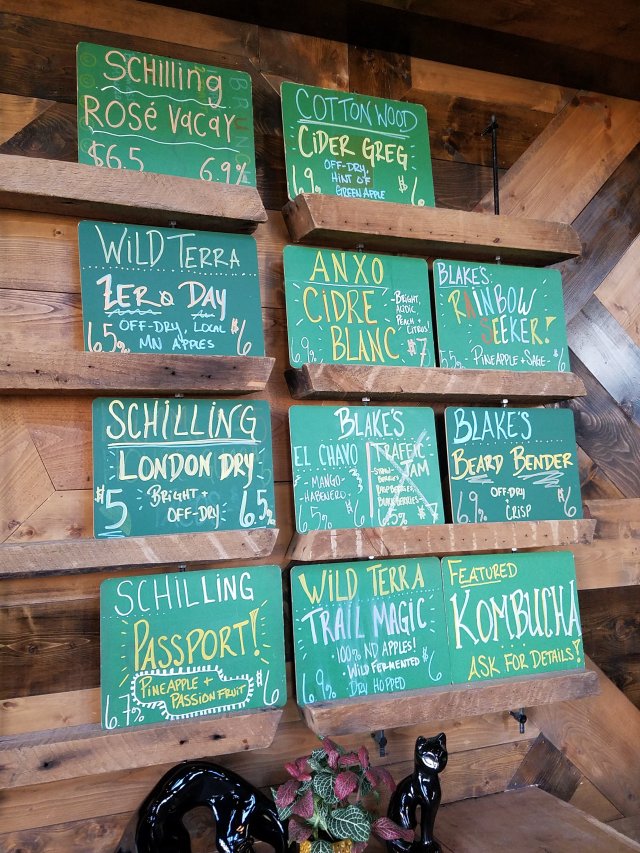 SCHILLING
ROSÉ VACAY
$6.5 6.9%
COTTONWOOD
CIDER GREG
OFF-DRY,
HINT OF
GREEN APPLE
6.9 $6
WILD TERRA
ZERO DAY
OFF-DRY, LOCAL
MN APPLES
6.5% $6
ANXO
CIDRE
BLANC
BRIGHT,
ACIDIC
PEACH +
CITRUS!
6.9% $7
BLAKE'S
RAINBOW
SEEKER!
PINEAPPLE + SAGE
5.5% $6
SCHILLING
LONDON DRY
BRIGHT +
OFF-DRY
$5 6.5%
BLAKE'S
EL CHAVO
MANGO-
HABENERO
6.5%
TRAFFIC
JAM
STRAW-
BERRIES,
RASPBERRIES,
BLACKBERRIES
6.5% $6
BLAKE'S
BEARD BENDER
OFF-DRY
+ CRISP
6.9% $6
SCHILLING
PASSPORT!
PINEAPPLE +
PASSION FRUIT
6.7% $6
WILD TERRA
TRAIL MAGIC
100% ND APPLES!
WILD FERMENTED
DRY HOPPED
6.9% $6
FEATURED
KOMBUCHA
ASK FOR DETAILS!